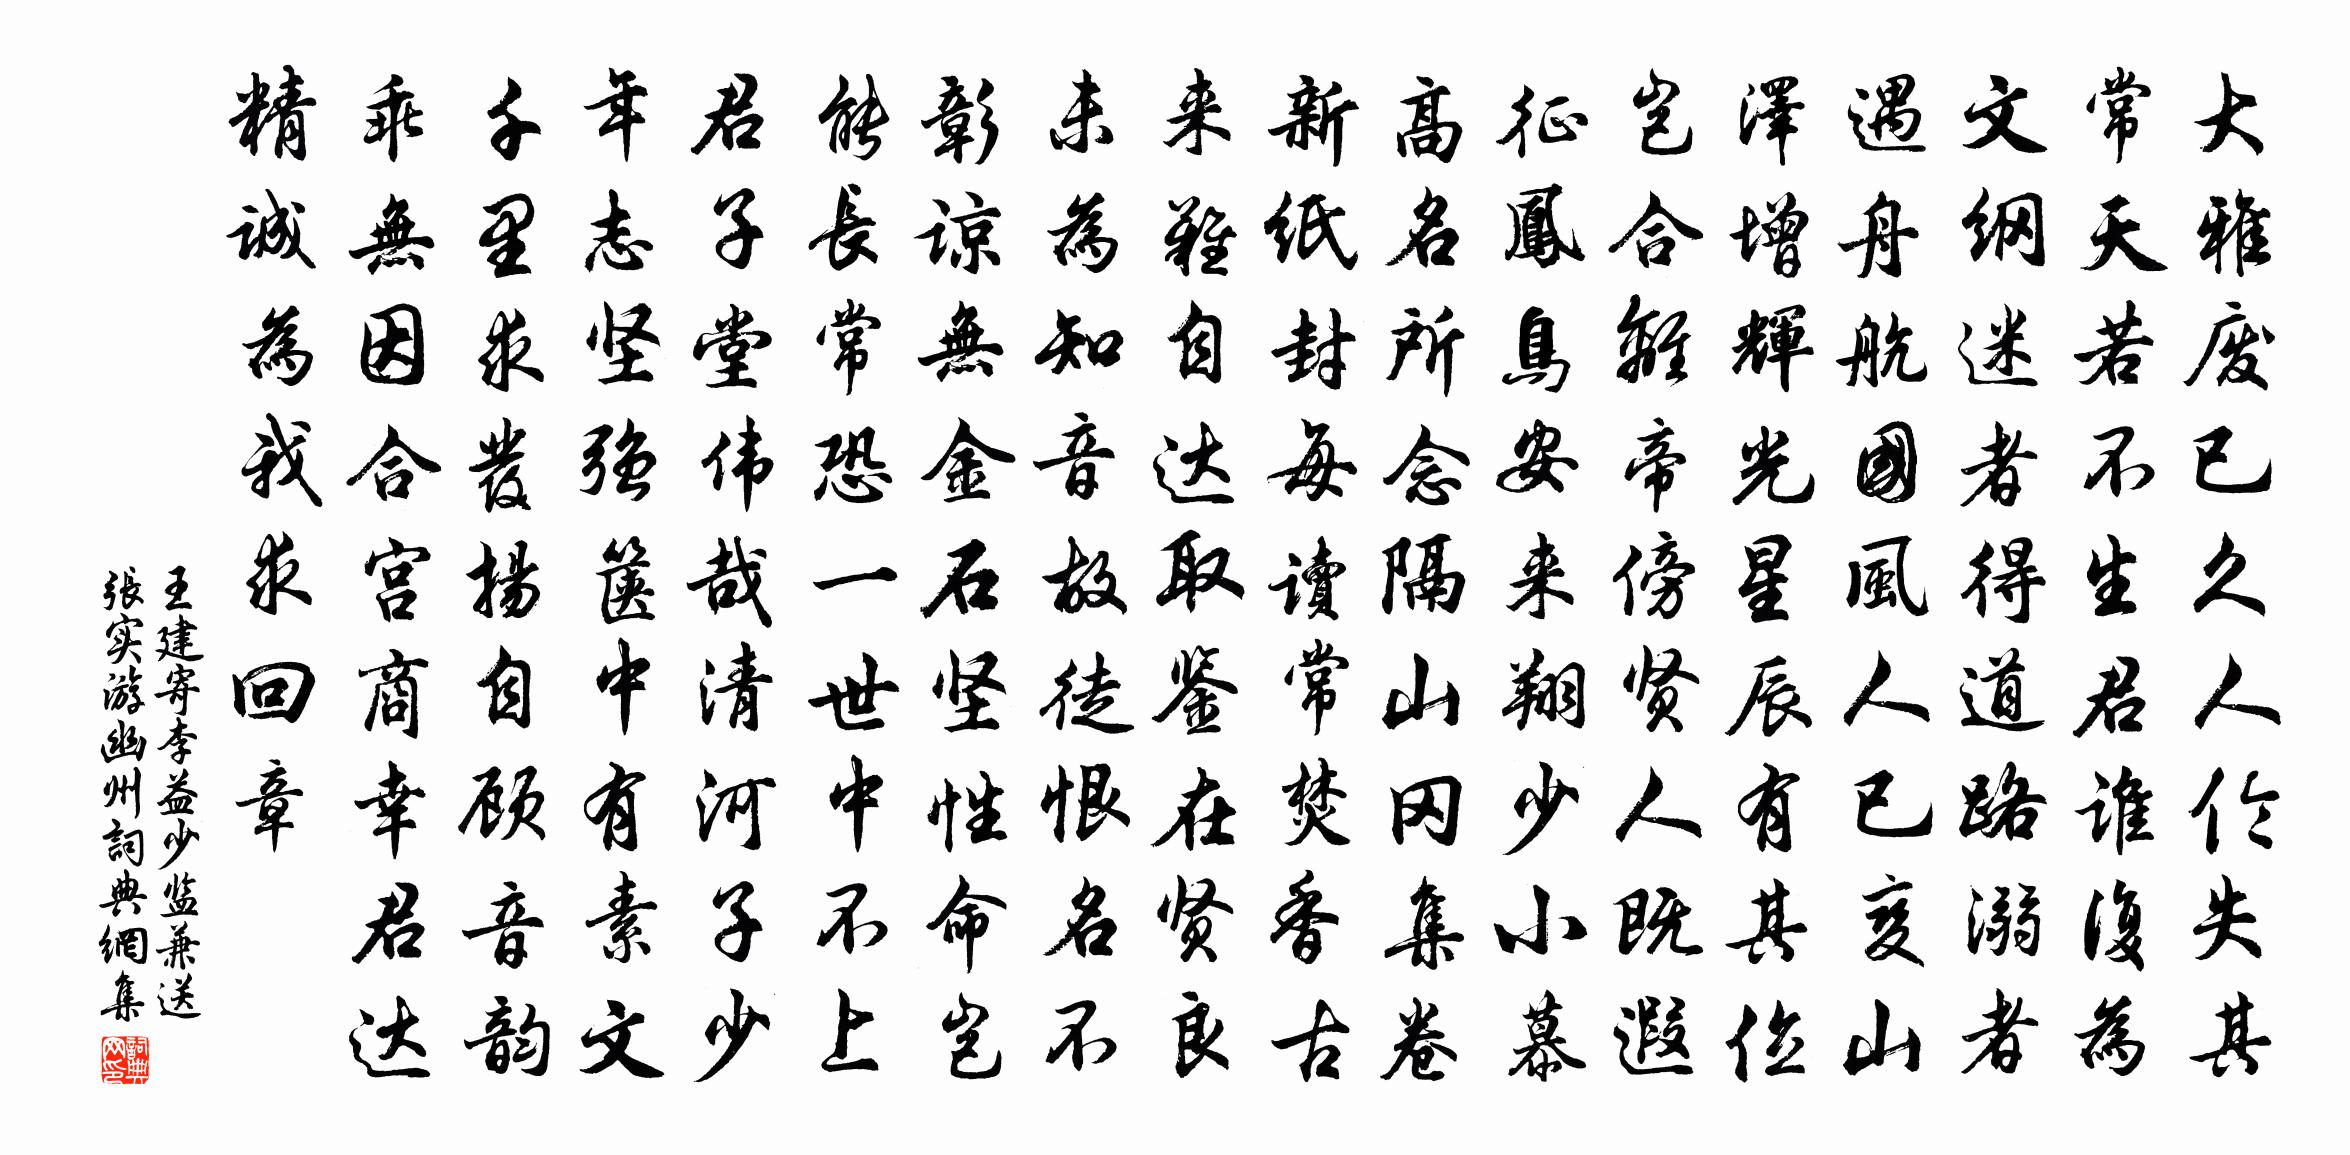 大雅废已久人伦失其
常天若不生君谁復為
文纲迷者得道路溺者
遇舟航國風人已变山
澤增輝光星辰有其位
岂合離帝傍贤人既遐
征鳳鳥安来翔少小慕
高名所念隔山冈集卷
新纸封每讀常焚香古
来難自达取鉴在贤良
未為知音故徒恨名不
彰谅無金石坚性命岂
能長常恐一世中不上
君子堂伟哉清河子少
年志坚强箧中有素文
千里求發揚自顾音韵
乖無因合宫商幸君达
精诚為我求回章
王建寄李益少监兼送
張实游幽州詞典網集
詞典网印